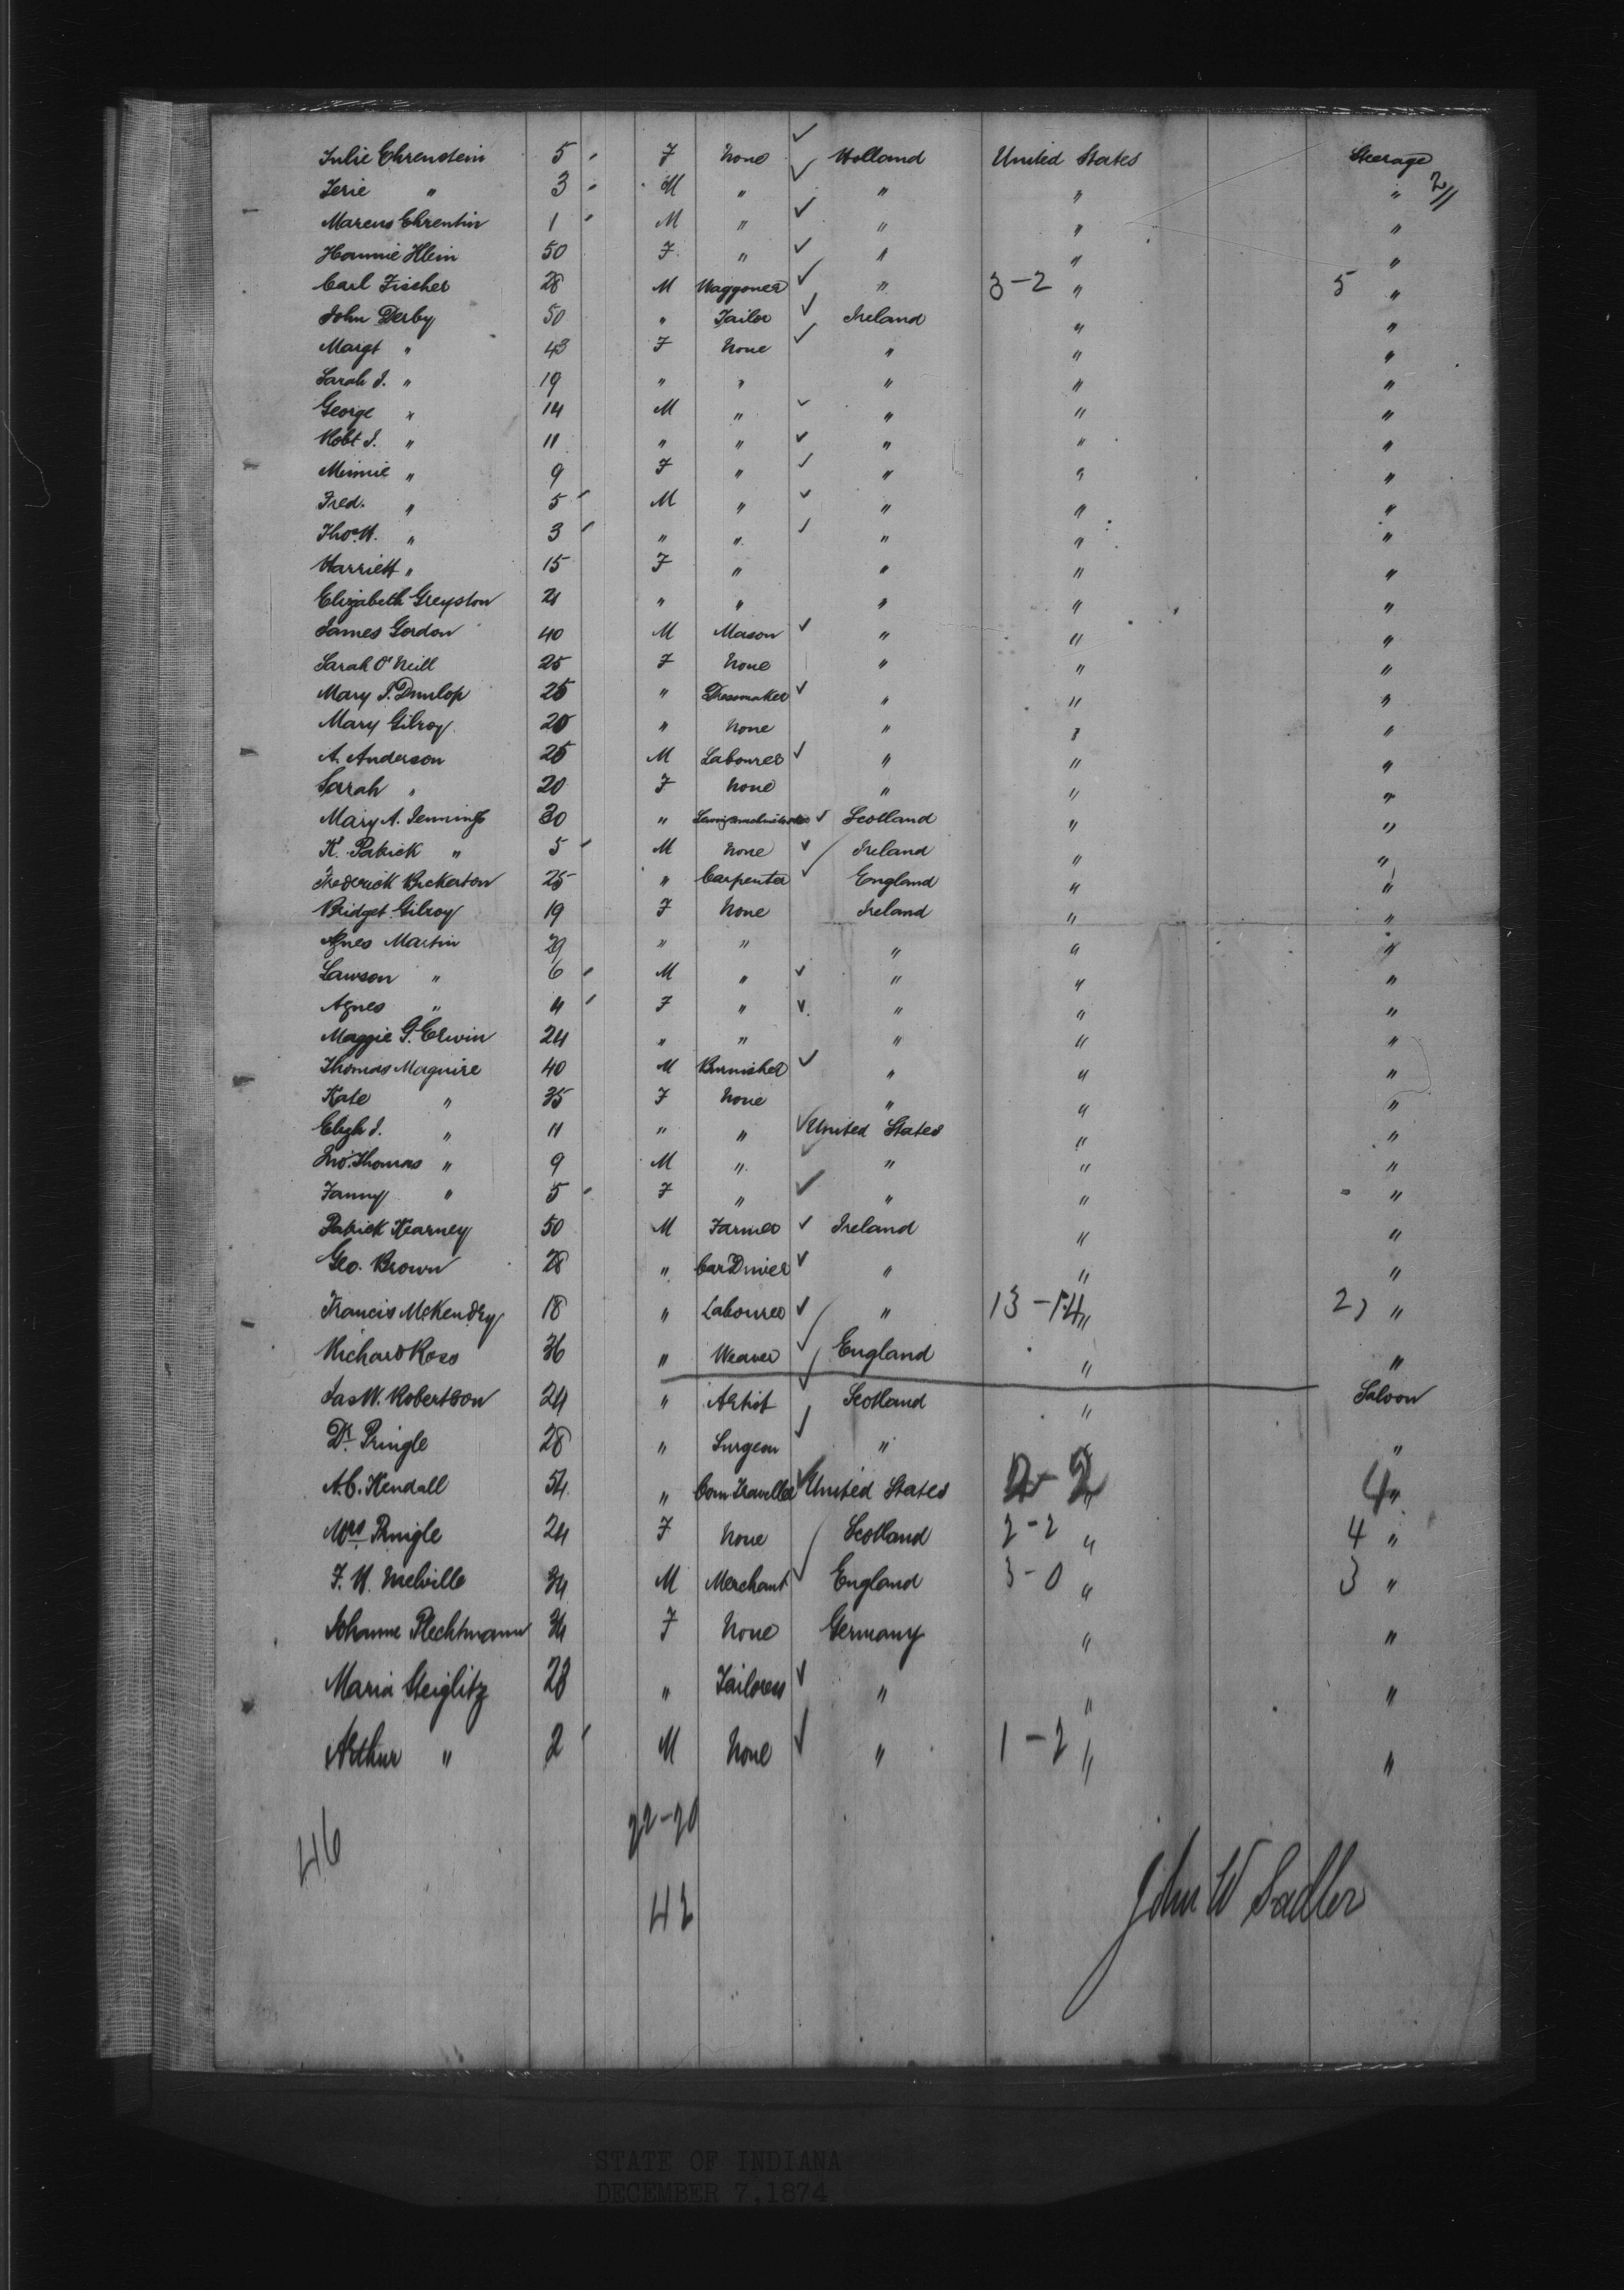 Julie Ehrenstein 5 F None Holland United States Steerage
Jerie " 3 M " " " " 2/1
Marcus Ehrentin 1 M " " " "
Hannie Klein 50 F " " " "
Carl Fischer 28 M Waggoner " 3-2 " 5 "
John Derby 50 " Tailor Ireland " "
Margt " 43 F None " " "
Sarah J. " 19 " " " " "
George " 14 M " " " "
Robt J. " 11 " " " " "
Minnie " 9 F " " " "
Fred. " 5 M " " " "
Thos. W. " 3 " " " " "
Harriett " 15 F " " " "
Elizabeth Greyston 21 " " " " "
James Gordon 40 M Mason " " "
Sarah O'Neill 25 F None " " "
Mary J. Dunlop 25 " Dressmaker " " "
Mary Gilroy 20 " None " " "
A. Anderson 25 M Labourer " " "
Sarah " 20 F None " " "
Mary A. Jennings 30 " Scotland " "
K. Patrick " 5 M None Ireland " "
Frederick Bickerton 25 " Carpenter England " "
Bridget Gilroy 19 F None Ireland " "
Agnes Martin 29 " " " " "
Lawson " 6 M " " " "
Agnes " 4 F " " " "
Maggie G. Erwin 24 " " " " "
Thomas Maguire 40 M Burnisher " " "
Kate " 35 F None " " "
J. " 11 " " United States " "
Jno. Thomas " 9 M " " " "
Fanny " 5 F " " " "
Patrick Kearney 50 M Farmer Ireland " "
Geo. Brown 28 " Car Driver " " "
Francis McKendry 18 " Labourer " 13-14 " 27 "
Richard Ross 36 " Weaver England " "
Jas W. Robertson 24 " Artist Scotland " Saloon
Dr. Pringle 28 " Surgeon " " "
A. C. Kendall 54 " Com. Traveller United States 2-2 " 4 "
Mrs Pringle 24 F None Scotland 2-2 " 4 "
F. W. Melville 34 M Merchant England 3-0 " 3 "
Johanne Plechtmann 34 F None Germany " "
Maria Steiglitz 28 " Tailoress " " "
Arthur " 2 M None " 1-2 " "
46 22-20
42
John W Sadler
STATE OF INDIANA
DECEMBER 7, 1874